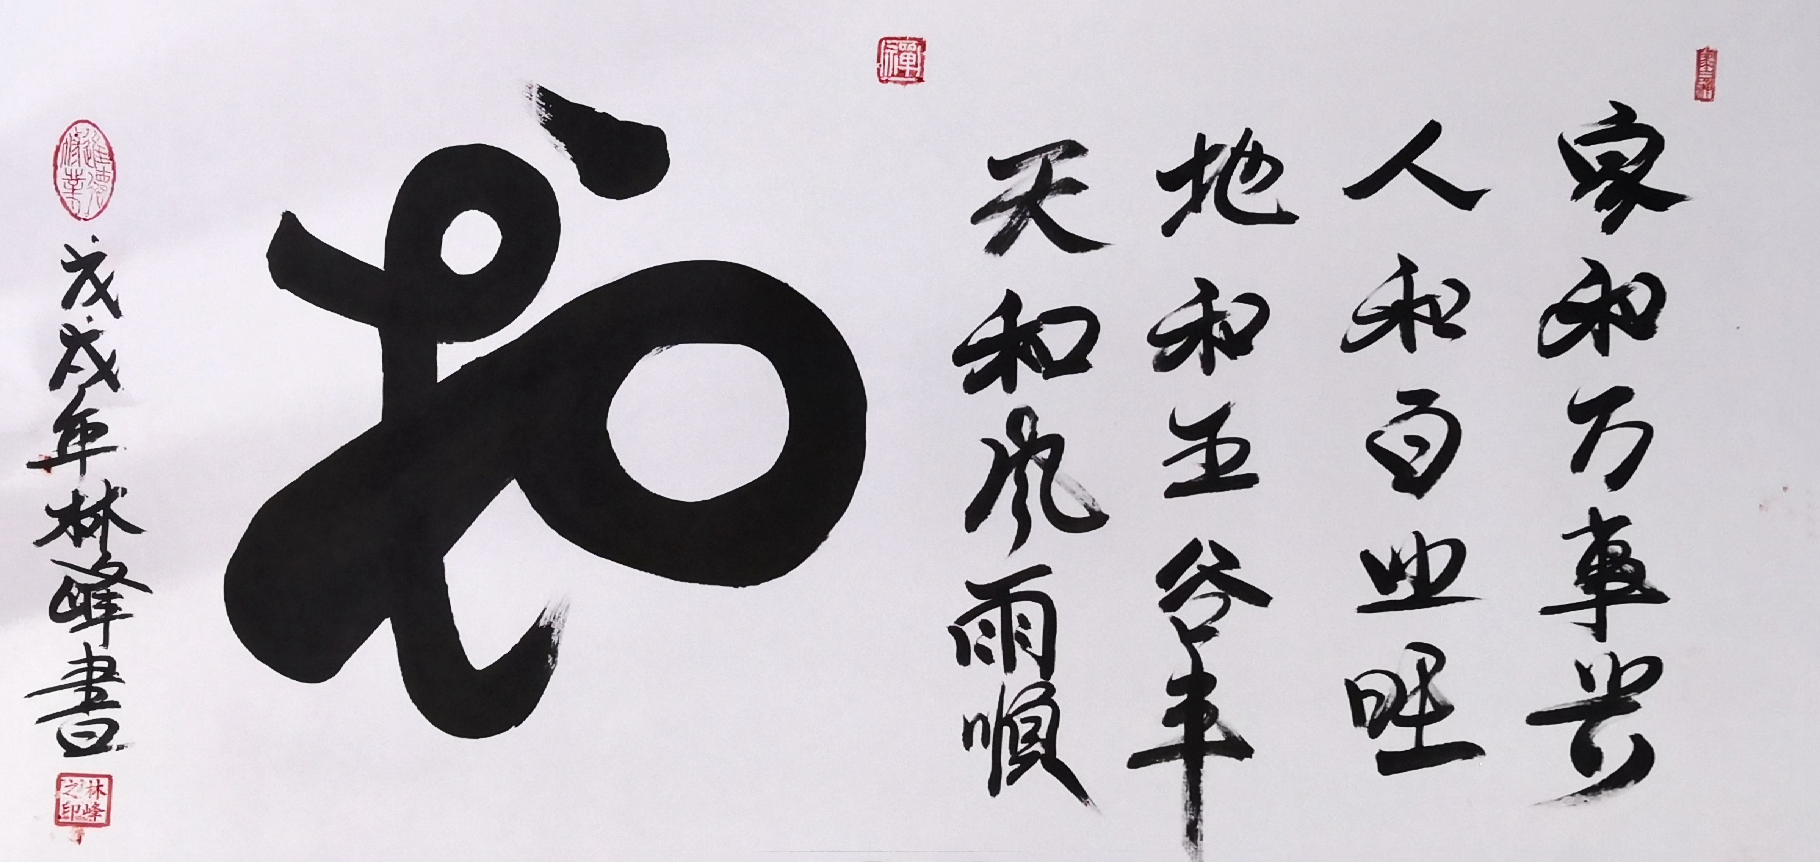 家和万事兴
人和百业旺
地和五谷丰
天和風雨順
禪
和
進德修業
戊戌年林峰書
林峰之印